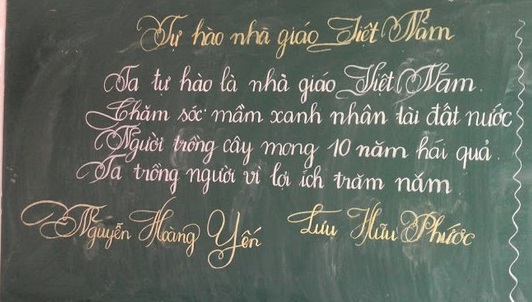 Tự hào nhà giáo Việt Nam
Ta tự hào là nhà giáo Việt Nam.
Chăm sóc mầm xanh nhân tài đất nước
Người trồng cây mong 10 năm hái quả.
Ta trồng người vì lợi ích trăm năm
Nguyễn Hoàng Yến Lưu Hữu Phước